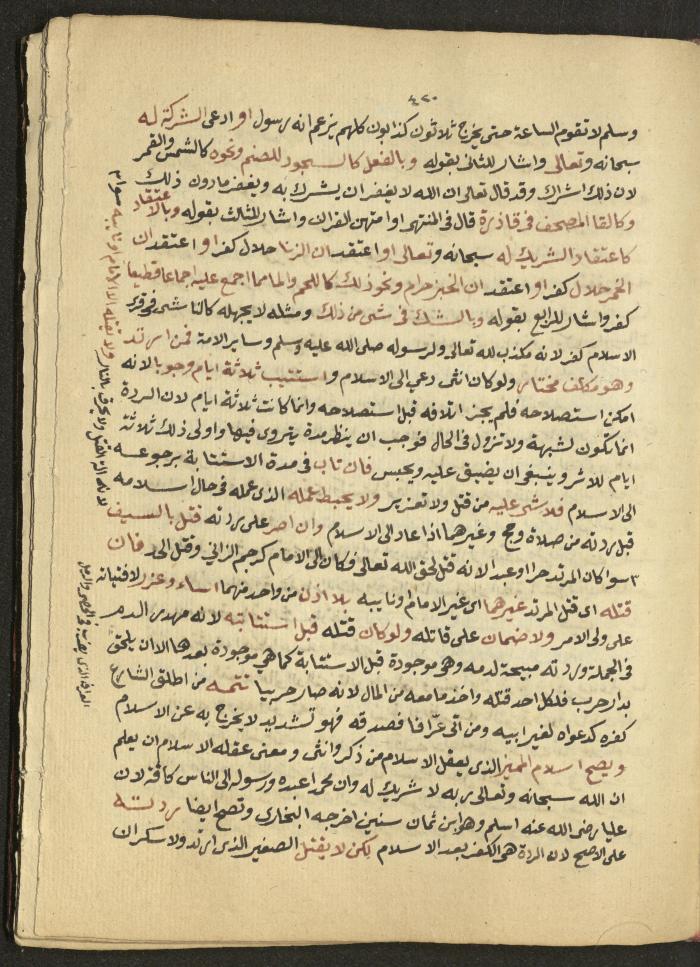 ٤٢٠
وسلم لا تقوم الساعة حتى يخرج ثلاثون كذابون كلهم يزعم انه رسول او ادعى الشركة له
سبحانه وتعالى واشار للثاني بقوله وبالفعل كالسجود للصنم ونحوه كالشمس والقمر
لان ذلك اشرك وقد قال تعالى ان الله لا يغفر ان يشرك به ويغفر ما دون ذلك
وكالقا المصحف في قاذرة قال في المنتهى او امتهن القران واشار للثالث بقوله وبالاعتقاد
كاعتقاد الشريك له سبحانه وتعالى او اعتقد ان الزنا حلال كفر او اعتقد ان
الخمر حلال كفر او اعتقد ان الخبز حرام ونحو ذلك كاللحم والما مما اجمع عليه اجماعا قطعيا
كفر واشار للرابع بقوله وبالشك في شي من ذلك ومثله لا يجهله كالناشي في قرى
الاسلام كفر لانه مكذب لله تعالى ولرسوله صلى الله عليه وسلم وساير الامة فمن ارتد
وهو مكلف مختار ولو كان انثى دعي الى الاسلام واستتيب ثلاثة ايام وجوبا لانه
امكن استصلاحه فلم يجز اتلافه قبل استصلاحه وانما كانت ثلاثة ايام لان الردة
انما تكون لشبهة ولا تزول في الحال فوجب ان ينظر مدة يتروى فيها واولى ذلك ثلاثة
ايام للاثر وينبغي ان يضيق عليه ويحبس فان تاب في مدة الاستتابة برجوعه
الى الاسلام فلا شي عليه من قتل ولا تعزير ولا يحبط عمله الذي عمله في حال اسلامه
قبل ردته من صلاة وحج وغيرهما اذا عاد الى الاسلام وان اصر على ردته قتل بالسيف
سوا كان المرتد حرا او عبدا لانه قتل لحق الله تعالى فكان الى الامام كرجم الزاني وقتل الحد فان
قتله اى قتل المرتد غيرهما اى غير الامام او نايبه بلا اذن من واحد منهما اساء وعزر لافتياته
على ولي الامر ولا ضمان على قاتله ولو كان قتله قبل استتابته لانه مهدر الدم
في الجملة وردته مبيحة لدمه وهي موجودة قبل الاستتابة كما هي موجودة بعدها الا ان يلحق
بدار حرب فلكل احد قتله واخذ ما معه من المال لانه صار حربيا تتمه من اطلق الشارع
كفره كدعواه لغير ابيه ومن اتى عرافا فصدقه فهو تشديد لا يخرج به عن الاسلام
ويصح اسلام المميز الذي يعقل الاسلام من ذكر وانثى ومعنى عقله الاسلام ان يعلم
ان الله سبحانه وتعالى ربه لا شريك له وان محمدا عبده ورسوله الى الناس كافة لان
عليا رضي الله عنه اسلم وهو ابن ثمان سنين اخرجه البخاري وتصح ايضا ردته
على الاصح لان الردة هي الكفر بعد الاسلام لكن لا يقتل الصغير الذي ارتد ولا سكران
ولا يقتله الا الامام او نايبه سوا
ولا يحرق بالنار
لانه الة القتل